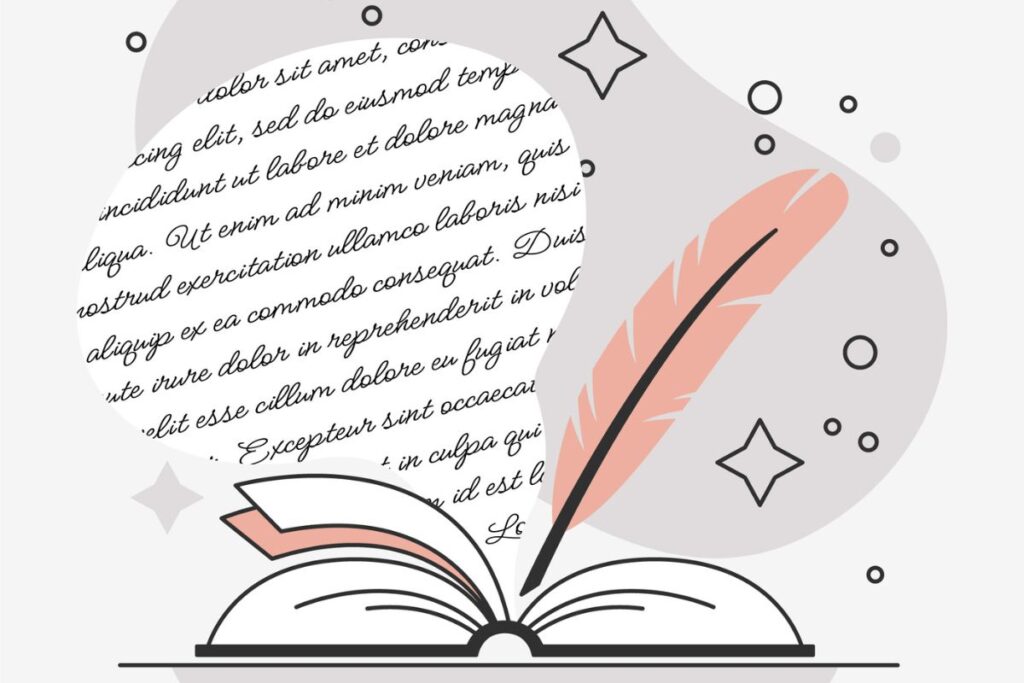 dolor sit amet, cons
cing elit, sed do eiusmod temp
incididunt ut labore et dolore magna
liqua. Ut enim ad minim veniam, quis
nostrud exercitation ullamco laboris nisi
aliquip ex ea commodo consequat. Duis
ute irure dolor in reprehenderit in vol
velit esse cillum dolore eu fugiat
Excepteur sint occaecat
t in culpa qui
m id est l
Lo